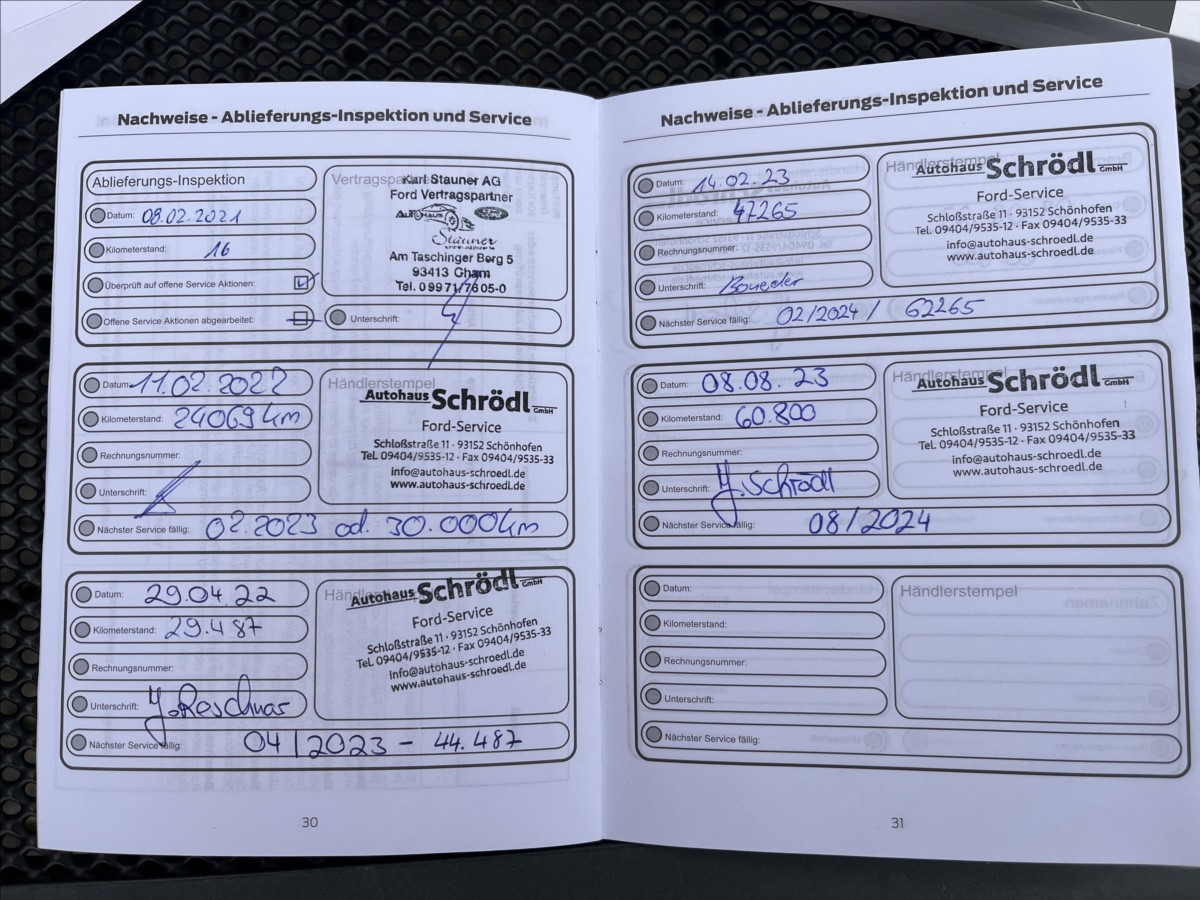 Nachweise - Ablieferungs-Inspektion und Service
Ablieferungs-Inspektion
Datum: 08.02.2021
Kilometerstand: 16
Überprüft auf offene Service Aktionen:
Offene Service Aktionen abgearbeitet:
Karl Stauner AG
Ford Vertragspartner
AUTOHAUS Ford
Stauner
Am Taschinger Berg 5
93413 Cham
Tel. 09971/7605-0
Unterschrift:
Datum: 11.02.2022
Kilometerstand: 24069 km
Rechnungsnummer:
Unterschrift:
Nächster Service fällig: 02.2023 od. 30.000km
Händlerstempel
Autohaus Schrödl GmbH
Ford-Service
Schloßstraße 11 · 93152 Schönhofen
Tel. 09404/9535-12 · Fax 09404/9535-33
info@autohaus-schroedl.de
www.autohaus-schroedl.de
Datum: 29.04.22
Kilometerstand: 29.487
Rechnungsnummer:
Unterschrift:
Nächster Service fällig: 04/2023 - 44.487
Autohaus Schrödl GmbH
Ford-Service
Schloßstraße 11 · 93152 Schönhofen
Tel. 09404/9535-12 · Fax 09404/9535-33
info@autohaus-schroedl.de
www.autohaus-schroedl.de
30
Nachweise - Ablieferungs-Inspektion und Service
Datum: 14.02.23
Kilometerstand: 47265
Rechnungsnummer:
Unterschrift:
Nächster Service fällig: 02/2024 / 62265
Händlerstempel
Autohaus Schrödl GmbH
Ford-Service
Schloßstraße 11 · 93152 Schönhofen
Tel. 09404/9535-12 · Fax 09404/9535-33
info@autohaus-schroedl.de
www.autohaus-schroedl.de
Datum: 08.08.23
Kilometerstand: 60.800
Rechnungsnummer:
Unterschrift: J. Schrödl
Nächster Service fällig: 08/2024
Händlerstempel
Autohaus Schrödl GmbH
Ford-Service
Schloßstraße 11 · 93152 Schönhofen
Tel. 09404/9535-12 · Fax 09404/9535-33
info@autohaus-schroedl.de
www.autohaus-schroedl.de
Datum:
Kilometerstand:
Rechnungsnummer:
Unterschrift:
Nächster Service fällig:
Händlerstempel
31